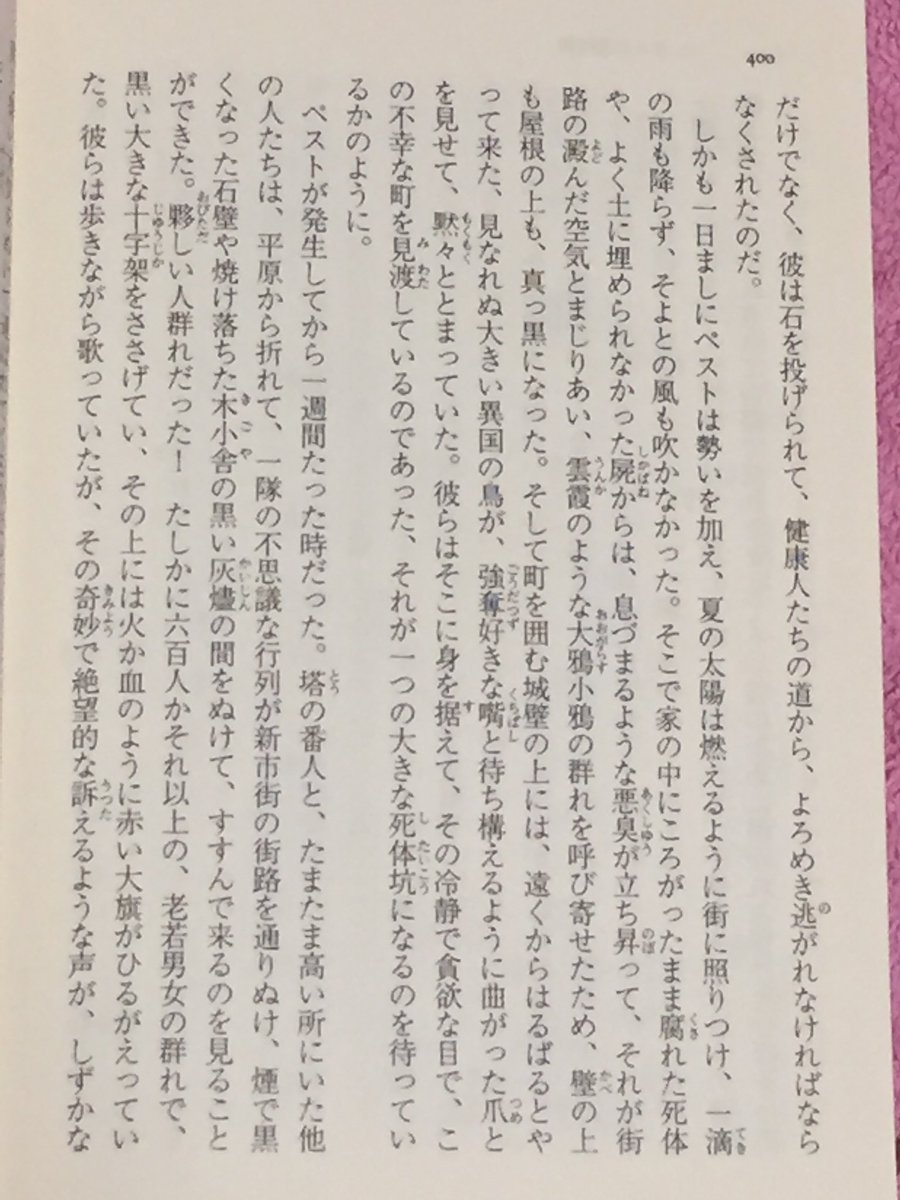 400
だけでなく、彼は石を投げられて、健康人たちの道から、よろめき逃がれなければなら
なくされたのだ。
しかも一日ましにペストは勢いを加え、夏の太陽は燃えるように街に照りつけ、一滴
の雨も降らず、そよとの風も吹かなかった。そこで家の中にころがったまま腐れた死体
や、よく土に埋められなかった屍からは、息づまるような悪臭が立ち昇って、それが街
路の澱んだ空気とまじりあい、雲霞のような大鴉小鴉の群れを呼び寄せたため、壁の上
も屋根の上も、真っ黒になった。そして町を囲む城壁の上には、遠くからはるばるとや
って来た、見なれぬ大きい異国の鳥が、強奪好きな嘴と待ち構えるように曲がった爪と
を見せて、黙々ととまっていた。彼らはそこに身を据えて、その冷静で貪欲な目で、こ
の不幸な町を見渡しているのであった、それが一つの大きな死体坑になるのを待ってい
るかのように。
ペストが発生してから一週間たった時だった。塔の番人と、たまたま高い所にいた他
の人たちは、平原から折れて、一隊の不思議な行列が新市街の街路を通りぬけ、煙で黒
くなった石壁や焼け落ちた木小舎の黒い灰燼の間をぬけて、すすんで来るのを見ること
ができた。夥しい人群れだった！　たしかに六百人かそれ以上の、老若男女の群れで、
黒い大きな十字架をささげてい、その上には火か血のように赤い大旗がひるがえってい
た。彼らは歩きながら歌っていたが、その奇妙で絶望的な訴えるような声が、しずかな